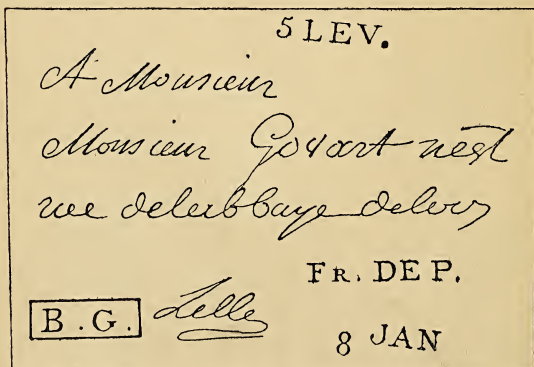 5 LEV.
A Monsieur
Monsieur Govart nég.t
rue de labbaye delos
FR. DE P.
B.G. Lille
8 JAN